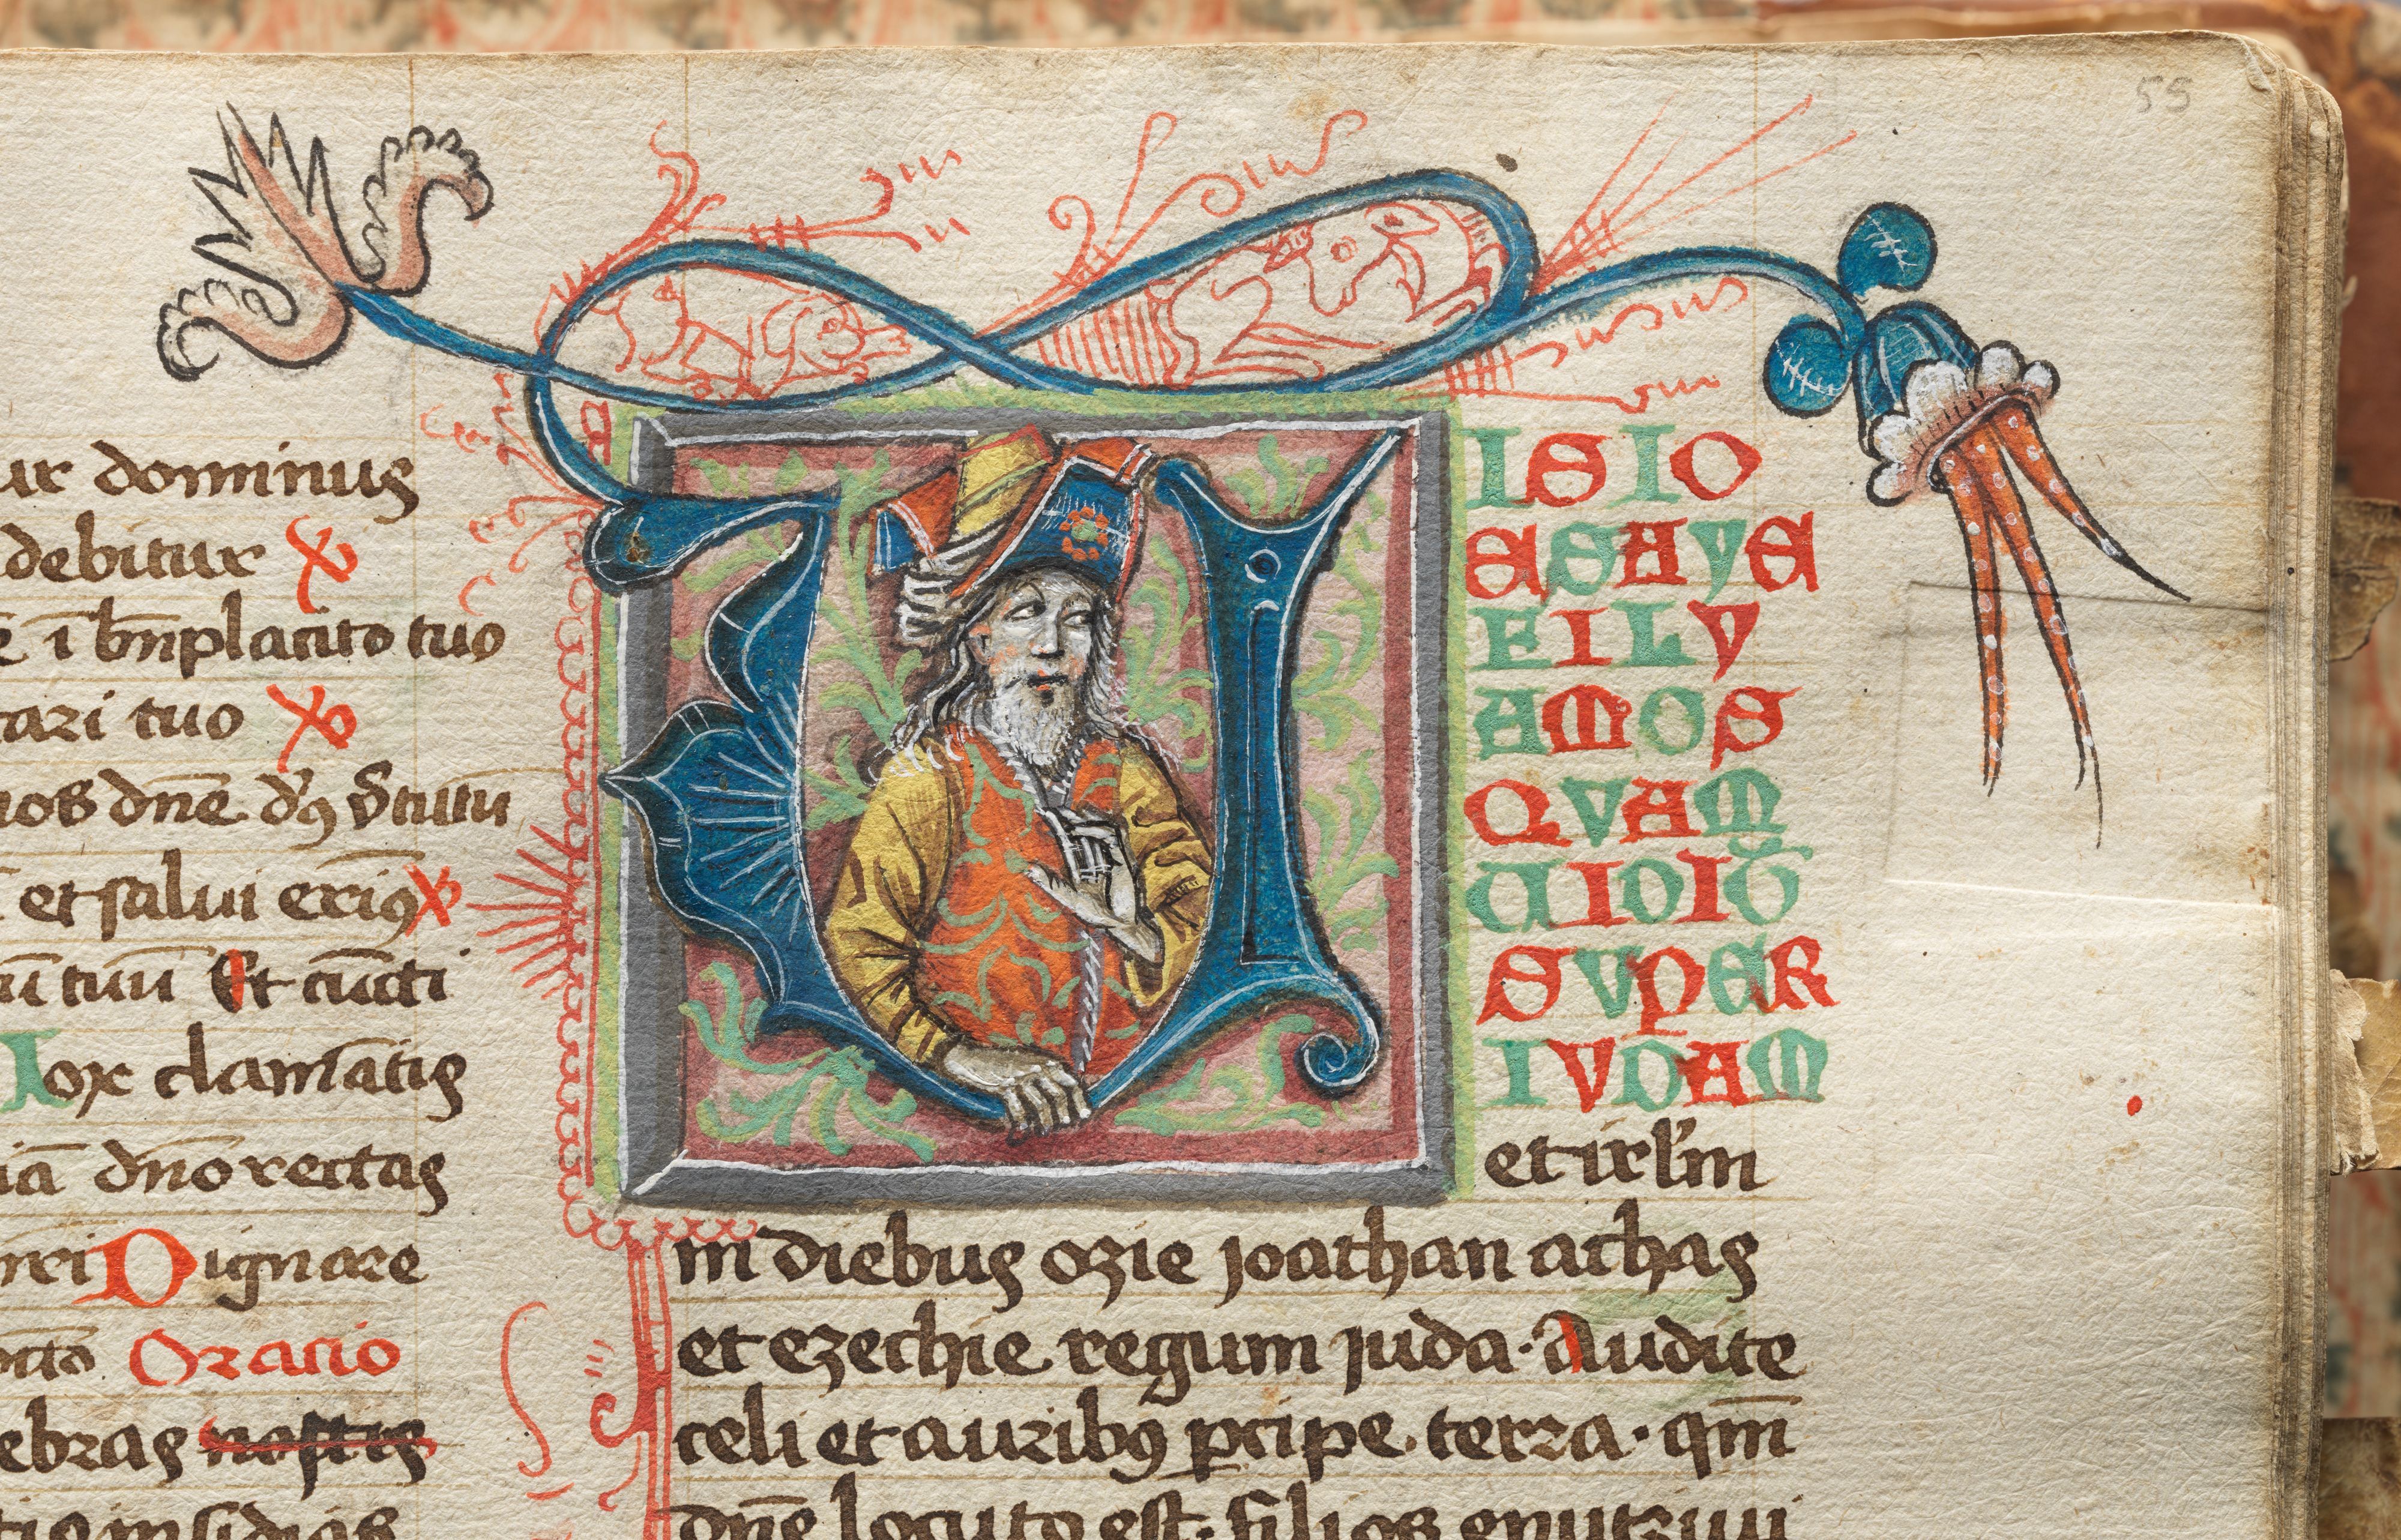 55
ur dominus
debitur
ī bn̄placito tuo
tari tuo
dn̄e
et salui eritꝰ
tuū Et cūcti
Vox clamātis
dn̄o rectas
Dignare
Oracio
ebras nostris
insidias
VISIO
ESAYE
FILY
AMOS
QVAM
VIDIT
SVPER
IVDAM
et irl̄m
in diebus ozie joathan achas
et ezechie regum juda · Audite
celi et auribꝰ ꝑcipe terra · qm̄
dn̄s locuto est · filios enutriui